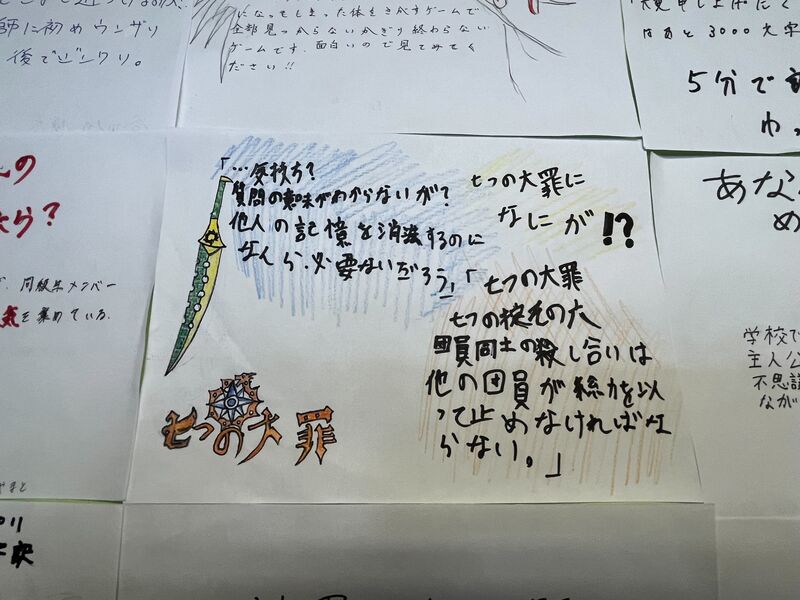 師に初めウンザリ
後でビックリ。
になってしまった体をさがすゲームで
全部見つからないかぎり終わらない
ゲームです。面白いので見てみてく
ださい!!
はあと3000文字
5分で
「…気持ち?
質問の意味がわからないが?
他人の記憶を消滅するのに
なんら必要ないだろう」
七つの大罪に
なにが!?
「七つの大罪
七つの掟その六
団員同士の殺し合いは
他の団員が総力を以
って止めなければな
らない。」
七つの大罪
ら?
同級生メンバー
気を集めている。
あな
め
学校で
主人公
不思議
なが